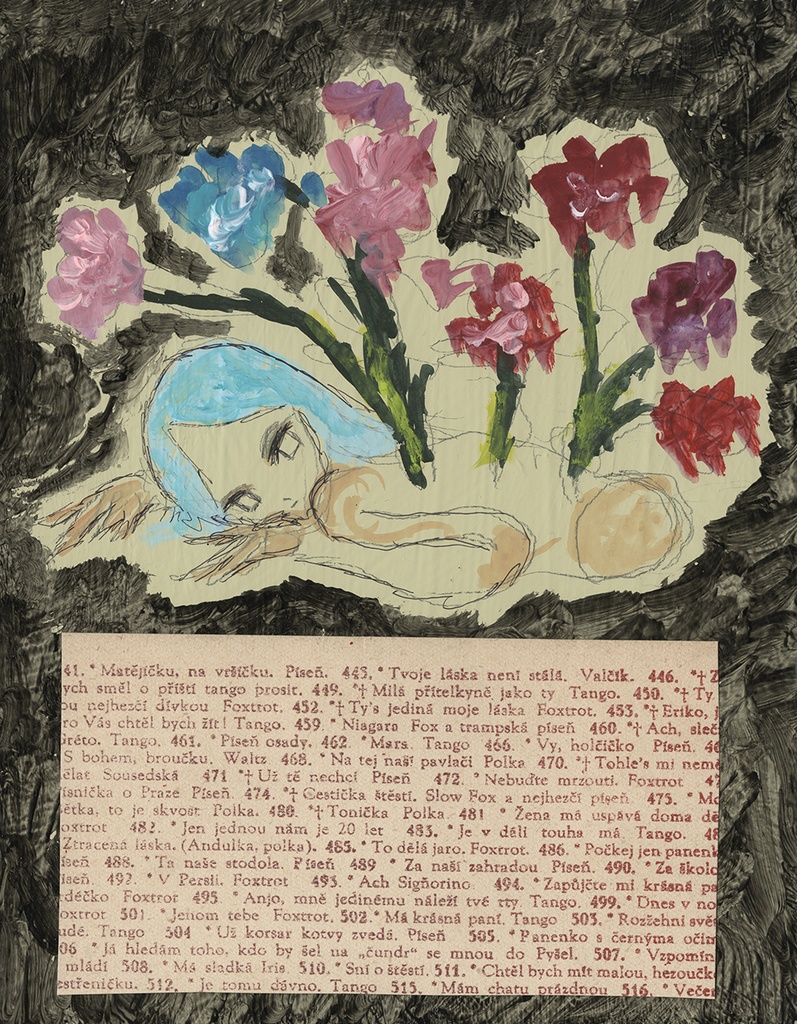 41. * Matějíčku, na vršíčku. Píseň. 443. * Tvoje láska není stálá. Valčík. 446. *† Z
ých směl o příští tango prosit. 449. *† Milá přítelkyně jako ty Tango. 450. *† Ty
ou nejhezčí dívkou Foxtrot. 452. *† Ty's jediná moje láska Foxtrot. 453. *† Eriko, j
ro Vás chtěl bych žít! Tango. 459 * Niagara Fox a trampská píseň 460. *† Ach, sleč
réto. Tango. 461. * Píseň osady. 462. * Mara. Tango 466. * Vy, holčičko Píseň. 46
S bohem, broučku. Waltz 468. * Na tej naší pavlači Polka 470. *† Tohle's mi nemě
ělat Sousedská 471 *† Už tě nechci Píseň 472. * Nebuďte mrzouti. Foxtrot 47
ísnička o Praze Píseň. 474. *† Cestička štěstí. Slow Fox a nejhezčí píseň. 475. * Mo
ětka, to je skvost Polka. 480. *† Tonička Polka. 481 * Žena má uspává doma dě
oxtrot 482. * Jen jednou nám je 20 let 483. * Je v dáli touha má. Tango. 48
Ztracená láska. (Andulka, polka). 485. * To dělá jaro. Foxtrot. 486. * Počkej jen panenk
íseň 488. * Ta naše stodola. Píseň 489 * Za naší zahradou Píseň. 490. * Za školo
íseň. 492. * V Persii. Foxtrot 493. * Ach Sigñorino 494. * Zapůjčte mi krásná pa
děčko Foxtrot 495 * Anjo, mně jedinému náleží tvé rty. Tango. 499. * Dnes v no
oxtrot 501. * Jenom tebe Foxtrot. 502. * Má krásná paní. Tango 503. * Rozžehni svě
udé. Tango 504 * Už korsar kotvy zvedá. Píseň 505. * Panenko s černýma očim
06 * Já hledám toho, kdo by šel na „čundr“ se mnou do Pyšel. 507. * Vzpomín
mládí 508. * Má sladká Iris. 510. * Sní o štěstí. 511. * Chtěl bych mít malou, hezoučk
estřeničku. 512. * Je tomu dávno. Tango 515. * Mám chatu prázdnou 516. * Večer